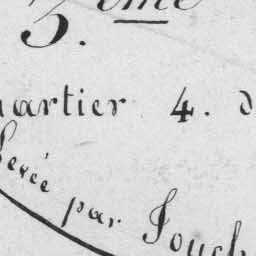 5.ème
uartier 4. d
Levée par Jouch